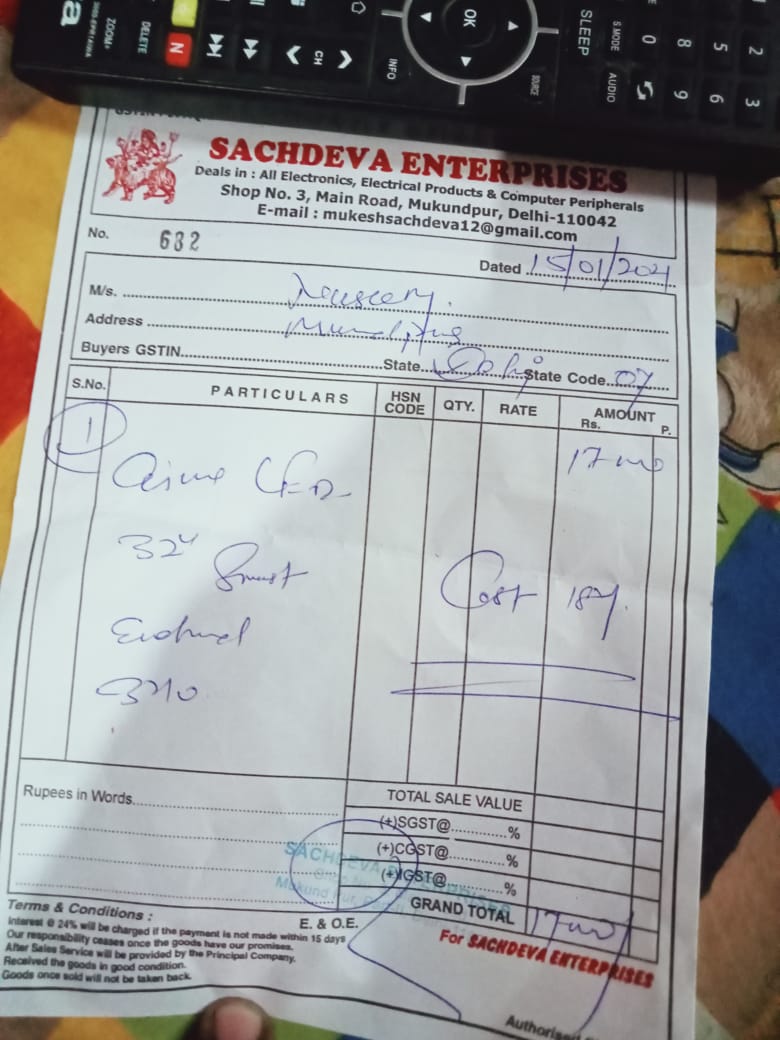 2
3
5
6
8
9
0
S.MODE
AUDIO
SLEEP
SOURCE
OK
INFO
CH
N
DELETE
ZOOM
a
SACHDEVA ENTERPRISES
Deals in : All Electronics, Electrical Products & Computer Peripherals
Shop No. 3, Main Road, Mukundpur, Delhi-110042
E-mail : mukeshsachdeva12@gmail.com
No. 632
Dated 15/01/2021
M/s.
Address
Buyers GSTIN State Delhi State Code 07
S.No. PARTICULARS HSN CODE QTY. RATE AMOUNT
Rs. P.
1
32"
Smart
Cost 18%
Rupees in Words
TOTAL SALE VALUE
(+)SGST@ %
(+)CGST@ %
(+)IGST@ %
GRAND TOTAL
SACHDEVA ENTERPRISES
Terms & Conditions :
E. & O.E.
Interest @ 24% will be charged if the payment is not made within 15 days
Our responsibility ceases once the goods have our promises.
After Sales Service will be provided by the Principal Company.
Received the goods in good condition.
Goods once sold will not be taken back.
For SACHDEVA ENTERPRISES